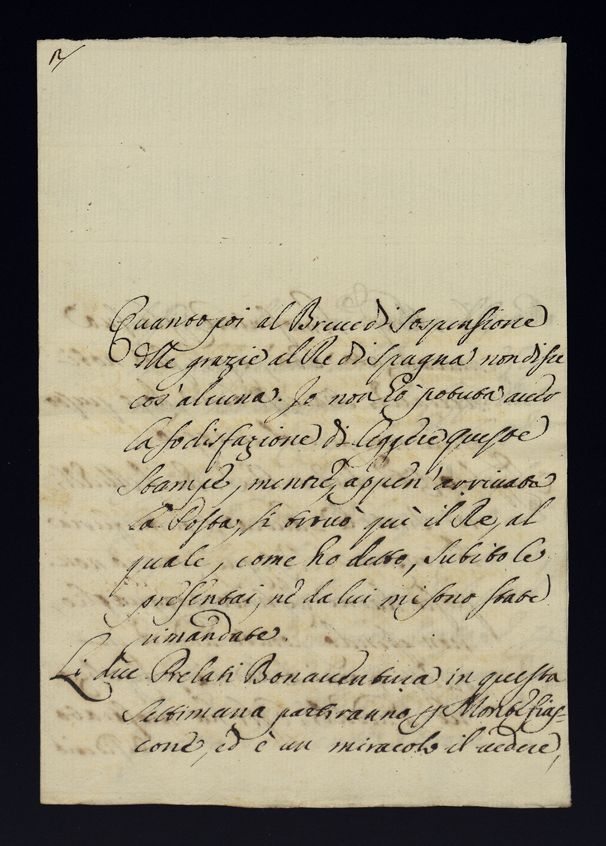 Quanto poi al Breve di Sospensione
delle grazie al Re di Spagna non disse
cos' alcuna. Io non hò potuta aver
la sodisfazione di leggere queste
stampe, mentre, appen' arrivata
la Posta, si trovò quì il Re, al
quale, come ho detto, subito le
presentai, nè da lui mi sono state
rimandate.
Li due Prelati Bonaventura in questa
settimana partiranno Montefias=
cone, ed è un miracolo il vedere,